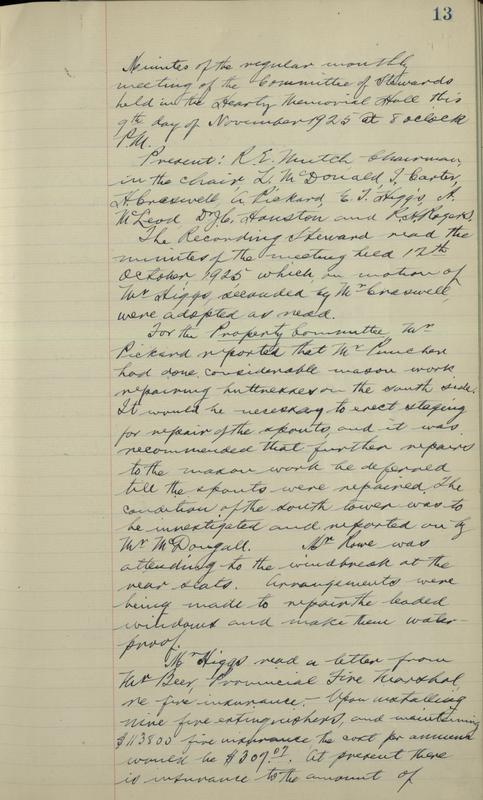 13
Minutes of the regular monthly
meeting of the Committee of Stewards
held in the Heartz Memorial Hall this
9th day of November 1925 at 8 oclock
P.M.
Present: R.E. Mutch Chairman,
in the chair L. McDonald, J. Carter,
H. Craswell, A. Pickard, E.T. Higgs, A.
McLeod, D.J.C. Houston and R.H. Rogers.
The Recording Steward read the
minutes of the meeting held 12th
October, 1925 which, on motion of
Mr Higgs, seconded by Mr Craswell,
were adopted as read.
For the Property Committee, Mr
Pickard reported that Mr Puncher
had done considerable mason work
repairing buttresses on the south side.
It would be necessary to erect staging
for repair of the spouts, and it was
recommended that further repairs
to the mason work be deferred
till the spouts were repaired. The
condition of the south tower was to
be investigated and reported on by
Mr McDougall. Mr Rowe was
attending to the windbreak at the
rear seats. Arrangements were
being made to repair the leaded
windows and make them water-
proof.
Mr Higgs read a letter from
Mr Beer, Provincial Fire Marshal
re fire insurance. - Upon installing
nine fire extinguishers, and maintaining
$113800 fire insurance the cost per annum
would be $307.07. At present there
is insurance to the amount of